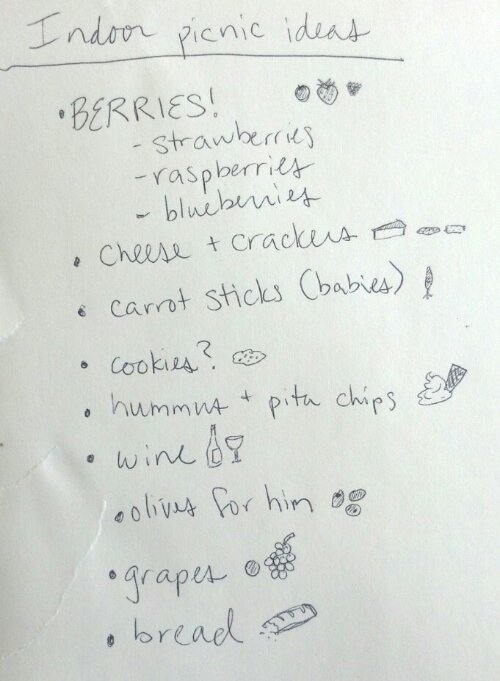 Indoor picnic ideas
• BERRIES!
- strawberries
- raspberries
- blueberries
• cheese + crackers
• carrot sticks (babies)
• cookies?
• hummus + pita chips
• wine
• olives for him
• grapes
• bread